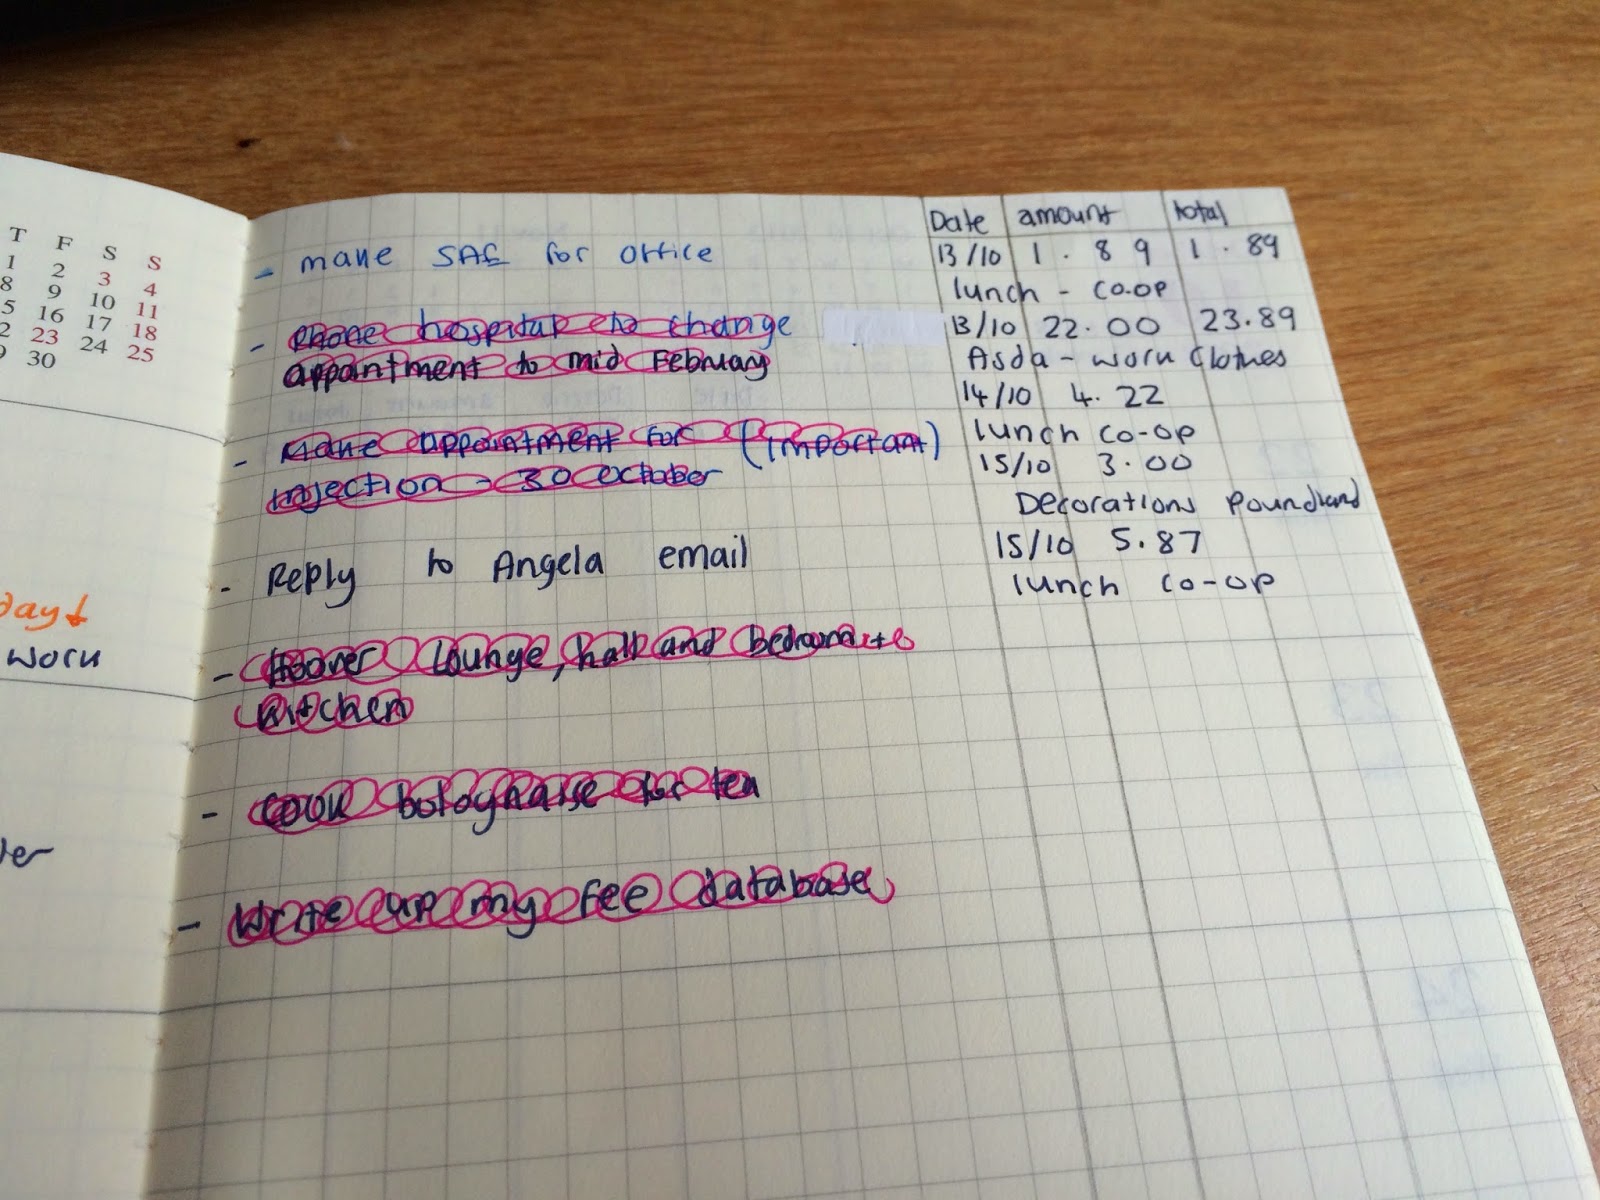 T F S S
1 2 3 4
8 9 10 11
5 16 17 18
2 23 24 25
9 30
day
work
er
- make SAE for office
- Phone hospital to change
appointment to mid February
- Make appointment for (important)
injection - 30 October
- Reply to Angela email
- Hoover lounge, hall and bedroom +
kitchen
- Cook bolognaise for tea
- Write up my fee database
Date amount total
13/10 1.89 1.89
lunch - co-op
13/10 22.00 23.89
Asda - work clothes
14/10 4.22
lunch co-op
15/10 3.00
Decorations poundland
15/10 5.87
lunch co-op